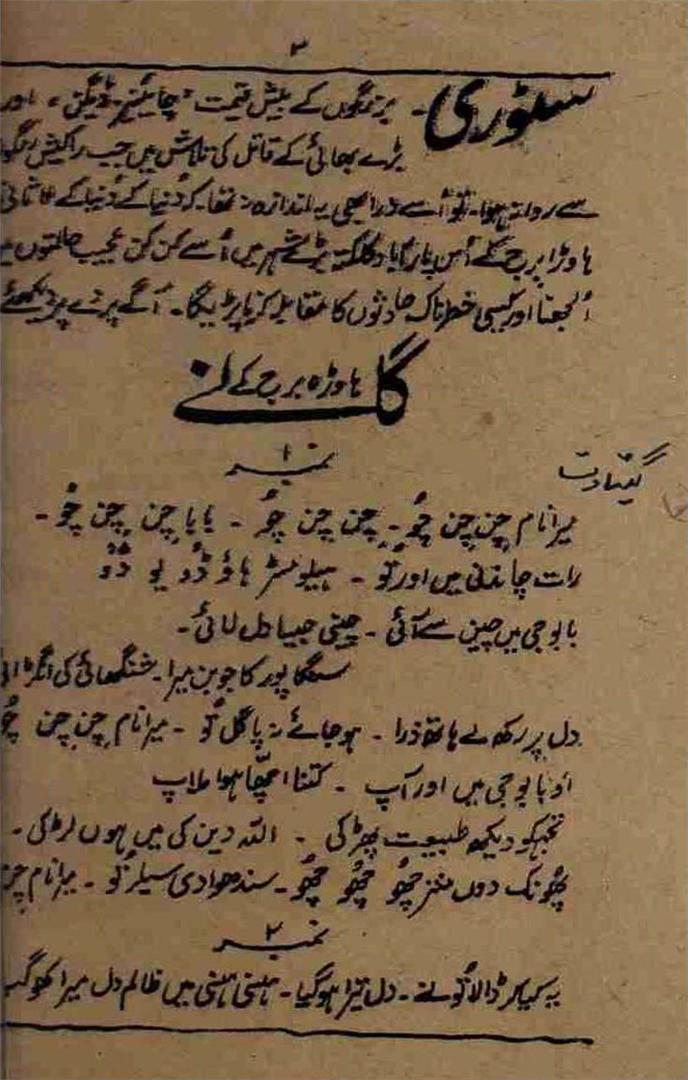 ۳
سٹوری ۔ بزرگوں کے بیش قیمت "چائینیز ڈیگن" اور
بڑے بھائی کے قاتل کی تلاش میں جب راکیش رنگو
سے روانہ ہوا۔ تو اُسے ذرا بھی یہ اندازہ نہ تھا۔ کہ دُنیا کے
ہاوڑا برج کے اُس پار آباد کلکتہ بڑے شہر میں اُسے کن کن عجیب حالتوں
اُلجھنا اور کیسی خطرناک حادثوں کا مقابلہ کرنا پڑیگا۔ آگے پردے پر دیکھئے
ہاوڑہ برج کے گانے
نمبر ۱
گیتا دت
میرا نام چِن چِن چُو۔ چِن چِن چُو ۔ بابا چِن چِن چُو ۔
رات چاندنی میں اور تُو ۔ ہیلو مسٹر ہاؤ ڈُو یو ڈُو
بابوجی میں چین سے آئی ۔ چینی جیسا دل لائی ۔
سنگاپور کا جوبن میرا ۔ شنگھائی کی انگڑائی
دل پر رکھ لے ہاتھ ذرا ۔ ہو جائے نہ پاگل تُو ۔ میرا نام چِن چِن چُو
او بابوجی میں اور آپ ۔ کتنا اچھّا ہوا ملاپ
تجہکو دیکھ طبیعت پھڑکی ۔ اللہ دین کی میں ہوں لڑکی ۔
پھُونک دوں منتر چھُو چھُو چھُو ۔ سندھوادی سیلر تُو ۔ میرا نام چن
نمبر ۲
یہ کیا کر ڈالا تُو نے ۔ دل تیرا ہو گیا ۔ ہنسی ہنسی میں ظالم دل میرا کھو گیا